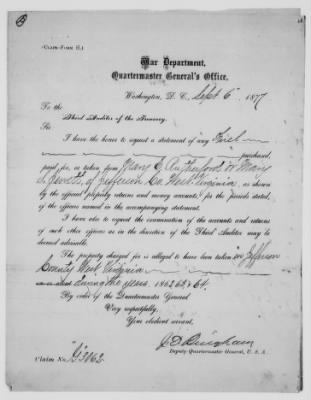 (CLAIM-FORM 17.)
War Department,
Quartermaster General's Office,
Washington, D. C., Sept 6" 1877
To the
Third Auditor of the Treasury.
Sir:
I have the honor to request a statement of any Fuel
purchased,
paid for, or taken from Mary E. Rutherford or Mary
of Jefferson Co. West Virginia, as shown
by the official property returns and money accounts, for the periods stated,
of the officers named in the accompanying statement.
I have also to request the examination of the accounts and returns
of such other officers as in the discretion of the Third Auditor may be
deemed advisable.
The property charged for is alleged to have been taken in Jefferson
County West Virginia
during the years 1862 63 & 64.
By order of the Quartermaster General
Very respectfully,
Your obedient servant,
J D Bingham
Deputy Quartermaster General, U. S. A.
Claim No. 2062